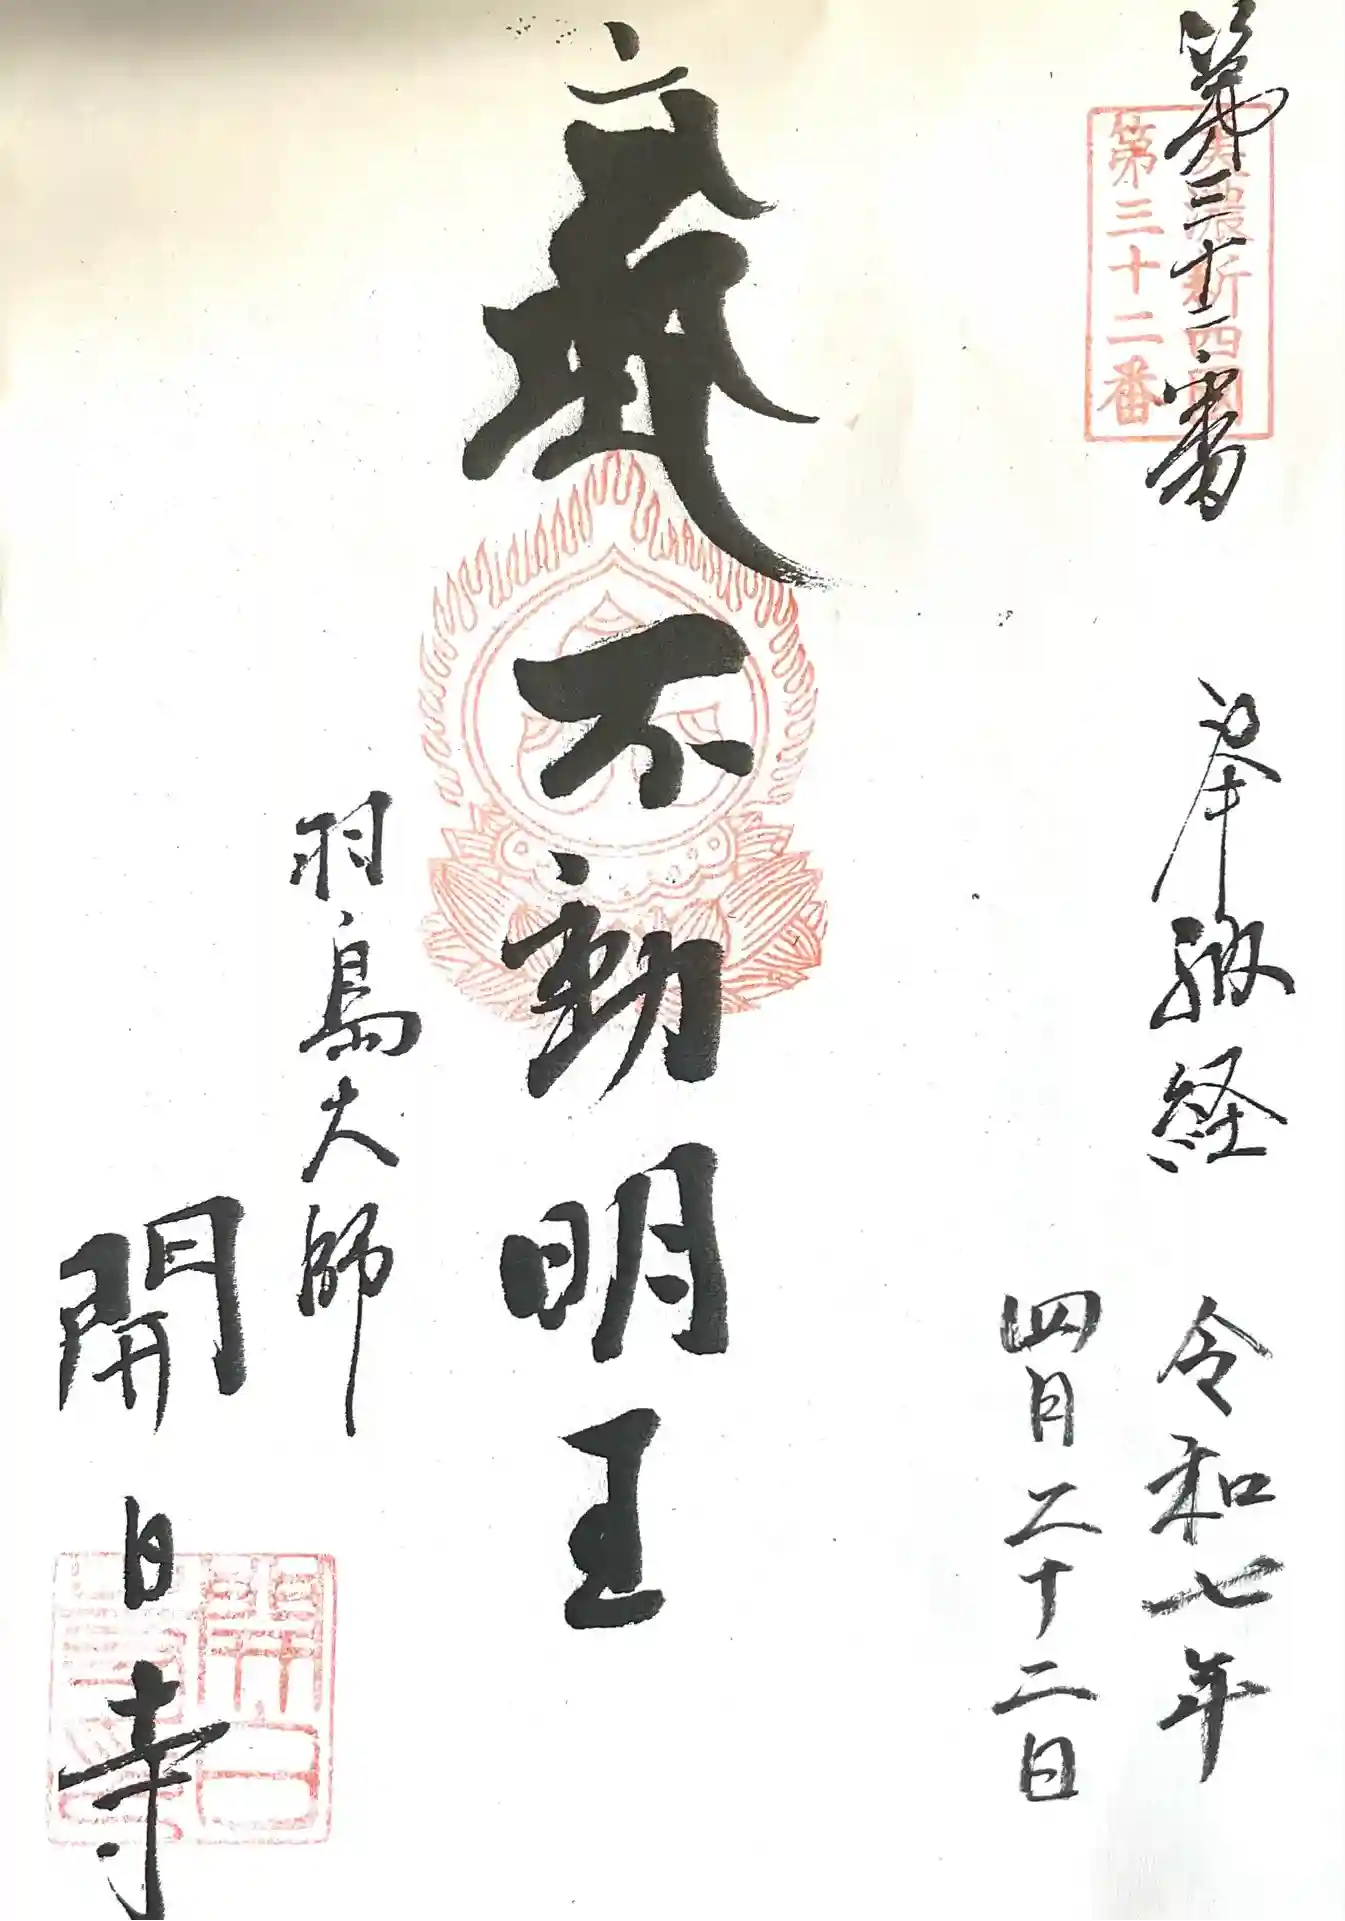 第三十二番
美濃新四國
第三十二番
奉納経
令和七年
四月二十二日
不動明王
羽島大師
開白寺
開白